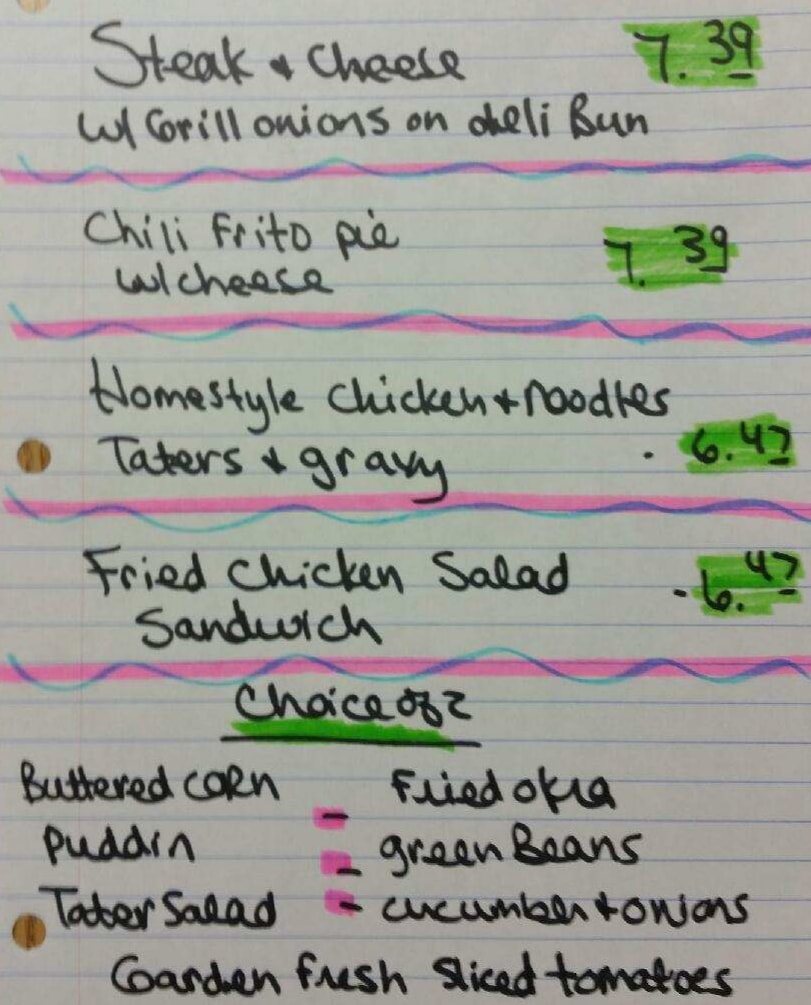 Steak & Cheese 7.39
w/ Grill onions on deli Bun
Chili Frito pie 7.39
w/ cheese
Homestyle Chicken & noodles
Taters & gravy . 6.47
Fried Chicken Salad - 6.47
Sandwich
Choice of 2
Buttered CORN - Fried okra
Puddin - green Beans
Tater Salad - cucumber & onions
Garden fresh sliced tomatoes